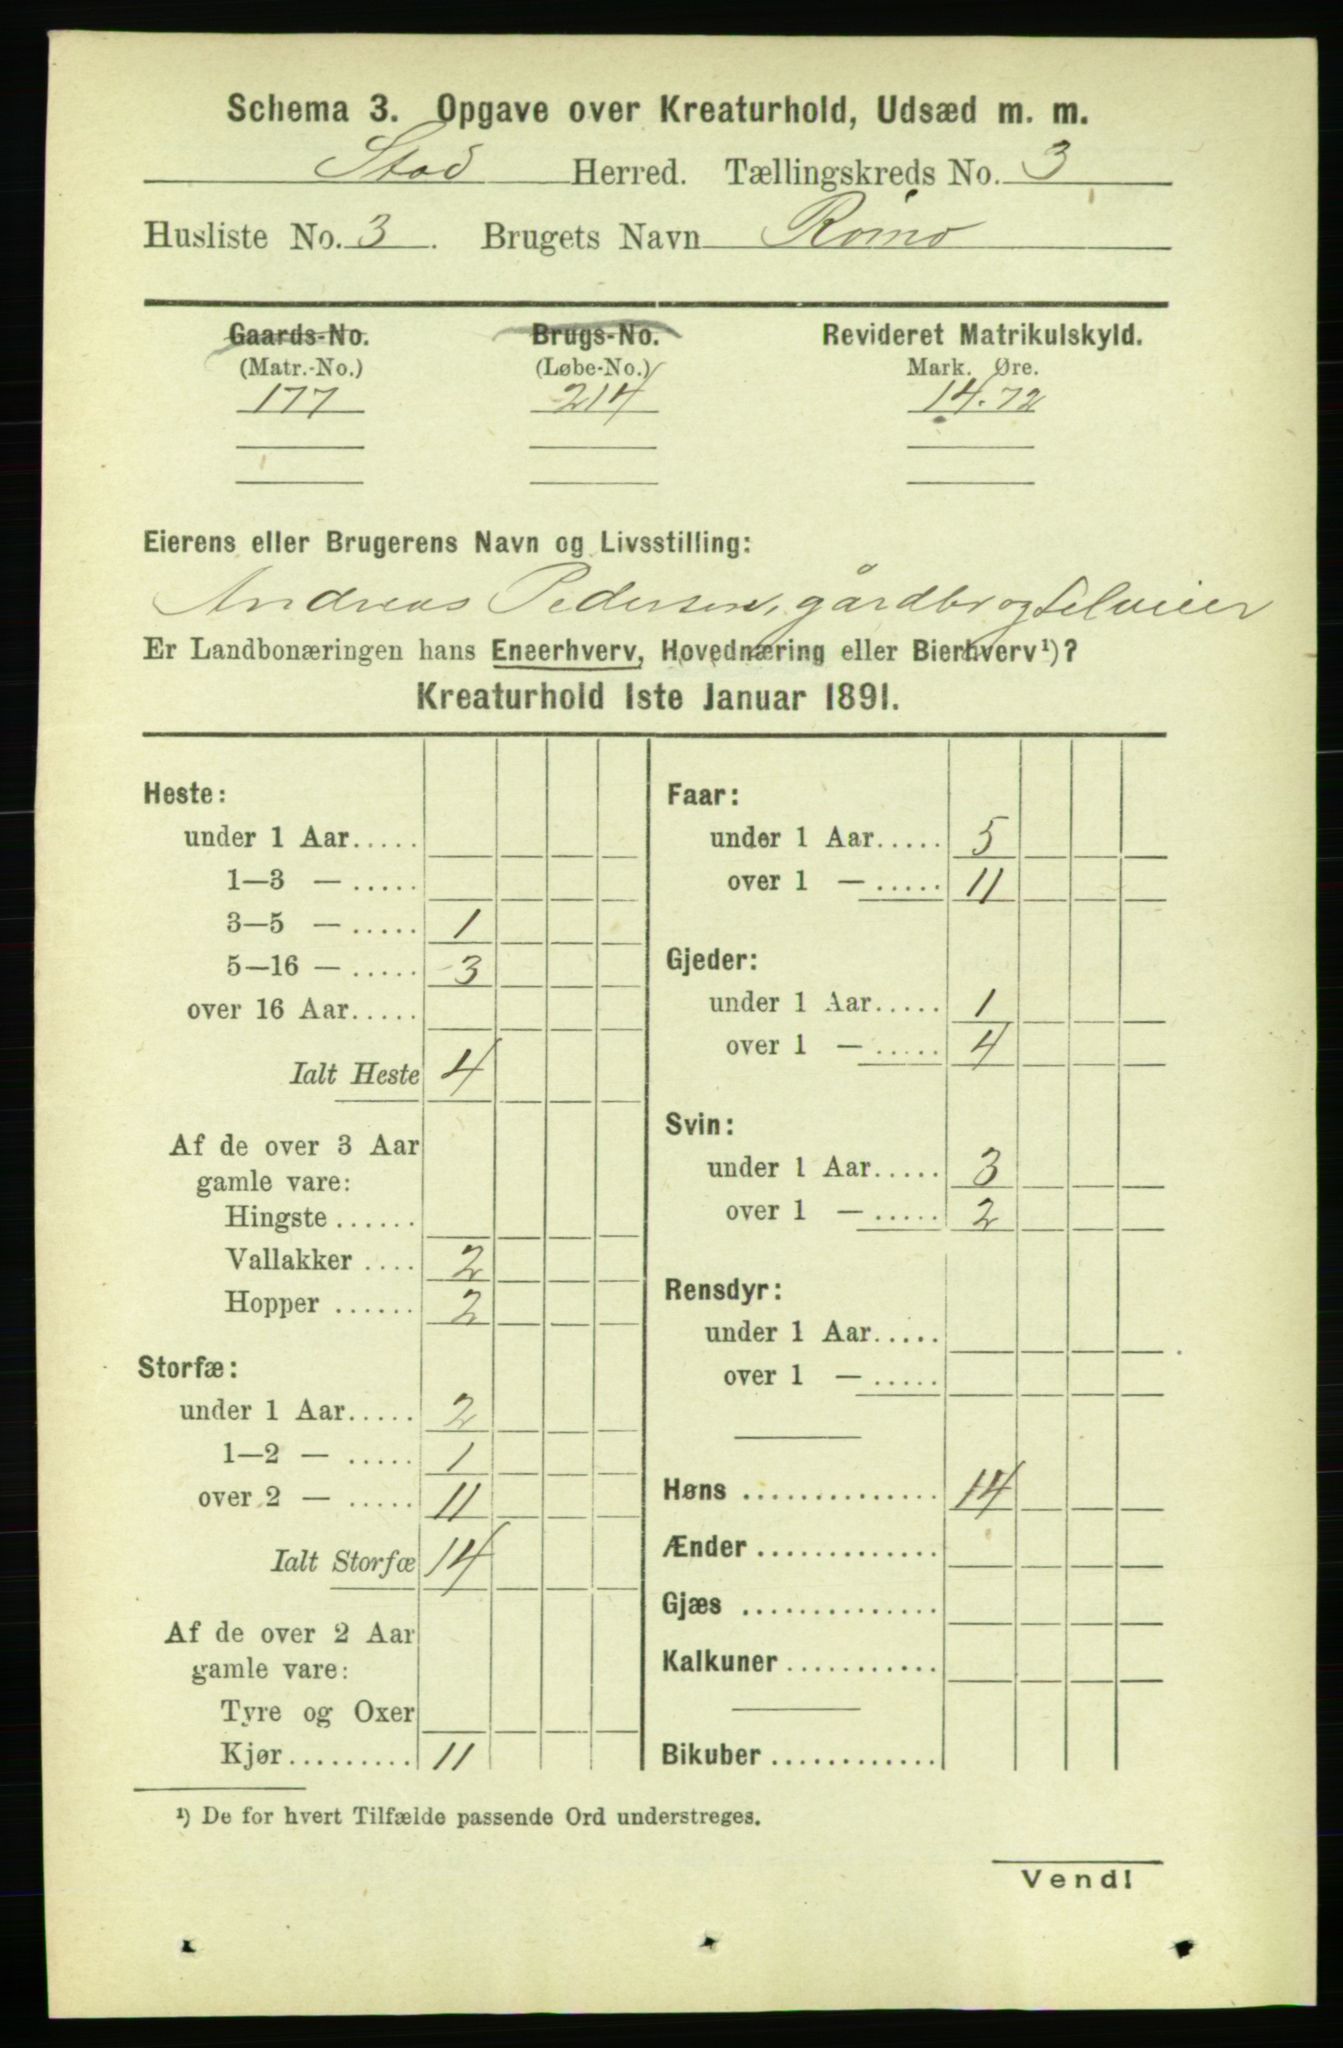 Schema 3. Opgave over Kreaturhold, Udsæd m. m.
Stod Herred. Tællingskreds No. 3
Husliste No. 3. Brugets Navn Römo
Gaards-No. Brugs-No. Revideret Matrikulskyld.
(Matr.-No.) (Løbe-No.) Mark. Øre.
177 214 14.72
Eierens eller Brugerens Navn og Livsstilling:
Andreas Pedersen, gårdbr og selveier
Er Landbonæringen hans Eneerhverv, Hovednæring eller Bierhverv¹)?
Kreaturhold 1ste Januar 1891.
Heste:
under 1 Aar.....
1—3 — .....
3—5 — ..... 1
5—16 — ..... 3
over 16 Aar.....
Ialt Heste 4
Af de over 3 Aar
gamle vare:
Hingste ......
Vallakker .... 2
Hopper ...... 2
Storfæ:
under 1 Aar..... 2
1—2 — ..... 1
over 2 — ..... 11
Ialt Storfæ 14
Af de over 2 Aar
gamle vare:
Tyre og Oxer
Kjør......... 11
Faar:
under 1 Aar..... 5
over 1 — ..... 11
Gjeder:
under 1 Aar..... 1
over 1 — ..... 4
Svin:
under 1 Aar..... 3
over 1 — ..... 2
Rensdyr:
under 1 Aar.....
over 1 — .....
Høns .............. 14
Ænder .............
Gjæs ..............
Kalkuner...........
Bikuber ............
¹) De for hvert Tilfælde passende Ord understreges.
Vend!